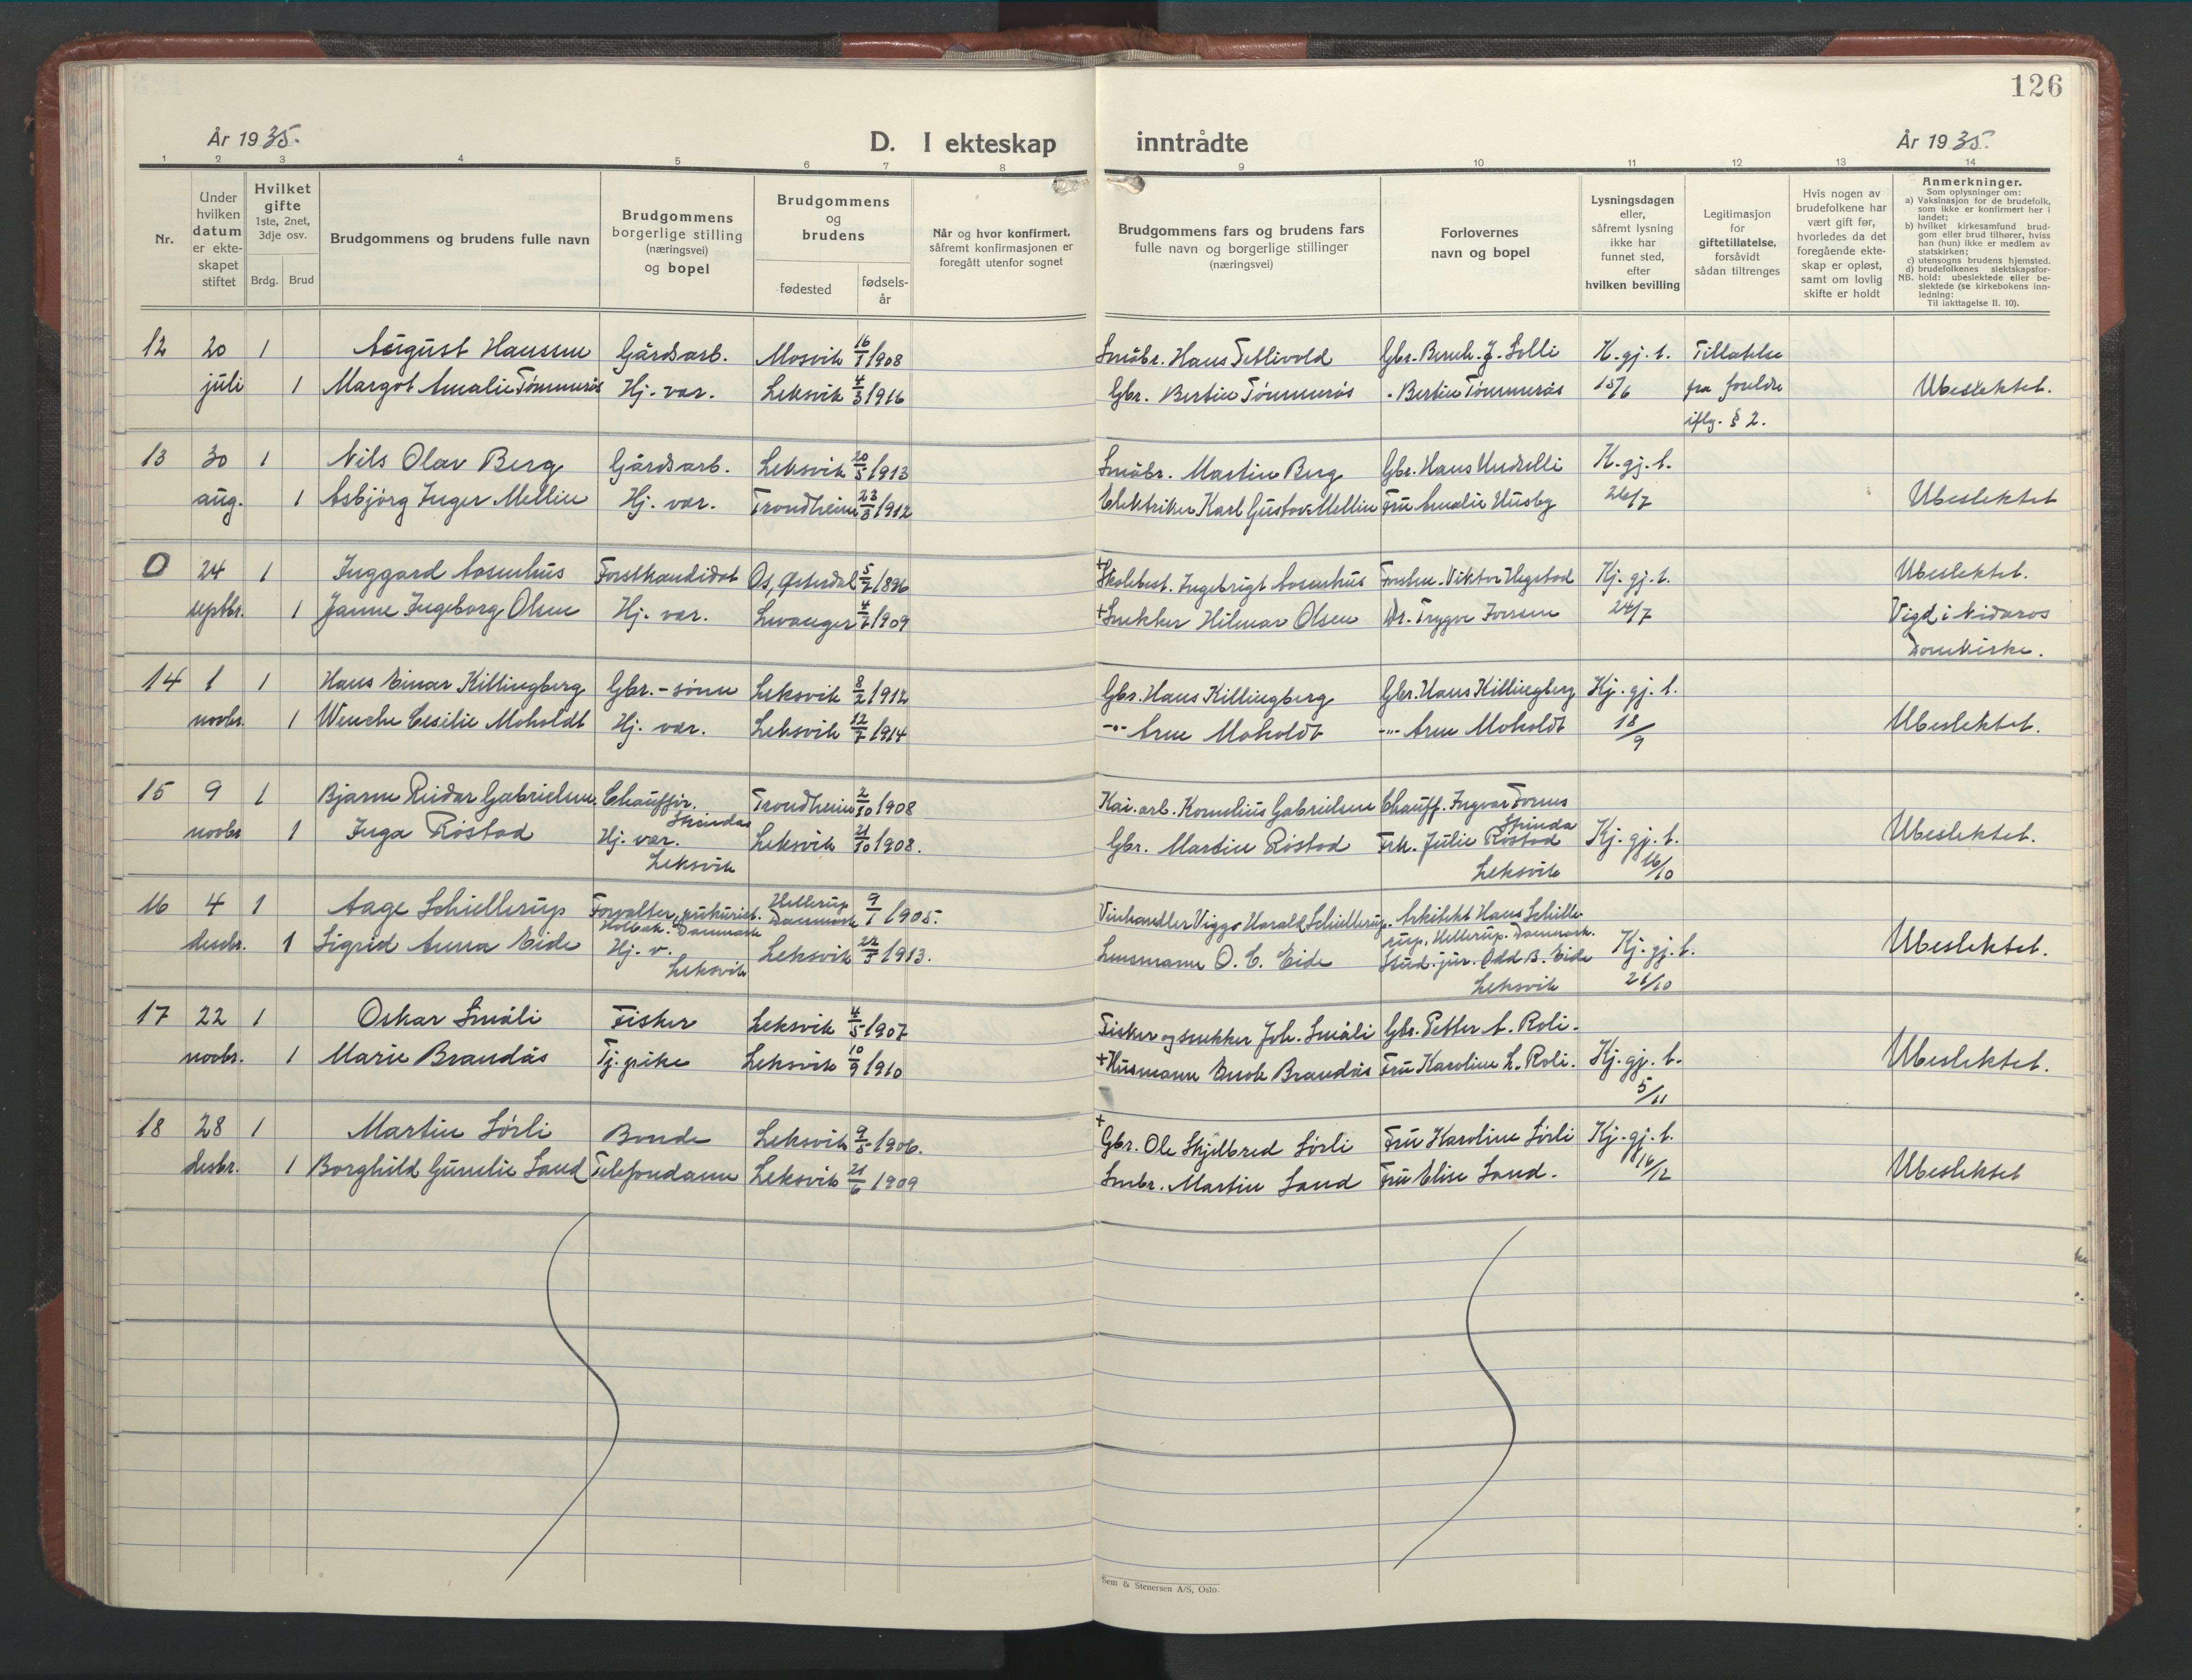 126
År 1935.
D. I ekteskap inntrådte
År 1935.
1 2 3 4 5 6 7 8 9 10 11 12 13 14
Nr.
Under hvilken datum er ekteskapet stiftet
Hvilket gifte 1ste, 2net, 3dje osv.
Brdg. Brud
Brudgommens og brudens fulle navn
Brudgommens borgerlige stilling (næringsvei) og bopel
Brudgommens og brudens
fødested
fødselsår
Når og hvor konfirmert, såfremt konfirmasjonen er foregått utenfor sognet
Brudgommens fars og brudens fars fulle navn og borgerlige stillinger (næringsvei)
Forlovernes navn og bopel
Lysningsdagen eller, såfremt lysning ikke har funnet sted, efter hvilken bevilling
Legitimasjon for giftetillatelse, forsåvidt sådan tiltrenges
Hvis nogen av brudefolkene har vært gift før, hvorledes da det foregående ekteskap er opløst, samt om lovlig skifte er holdt
Anmerkninger.
Som oplysninger om:
a) Vaksinasjon for de brudefolk, som ikke er konfirmert her i landet;
b) hvilket kirkesamfund brudgom eller brud tilhører, hviss han (hun) ikke er medlem av statskirken;
c) utensogns brudens hjemsted.
d) brudefolkenes slektskapsforhold: ubeslektede eller beslektede (se kirkebokens innledning:
NB. Til iakttagelse II. 10).
12 20 1 August Hansen Gårdsarb. Mosvik 16/1 1908 Småbr. Hans Tetlivold Gbr. Bernh. J. Solli K. gj. t. Tillatelse
juli 1 Margot Amalie Tømmerås Hj. vær. Leksvik 4/3 1916 Gbr. Bertin Tømmerås - Bertin Tømmerås 15/6 fra foreldre Ubeslektet.
iflg. § 2.
13 30 1 Nils Olav Berg Gårdsarb. Leksvik 20/5 1913 Småbr. Martin Berg Gbr. Hans Undselli K. gj. t.
aug. 1 Asbjørg Inger Mellin Hj. vær. Trondheim 23/8 1912 Elektriker Karl Gustav Mellin Fru Amalie Husby 26/7 Ubeslektet
0 24 1 Inggard Aasenhus Forstkandidat Os, Østerdal 5/2 1896 + Skolebest. Ingebrigt Aasenhus Forstm. Viktor Hegstad Kj. gj. t. Ubeslektet.
septbr. 1 Janne Ingeborg Olsen Hj. vær. Levanger 4/6 1909 + Snekker Hilmar Olsen Dr. Trygve Iversen 24/7 Vigd i Nidaros
Domkirke.
14 1 1 Hans Einar Killingberg Gbr.-sønn Leksvik 8/2 1912 Gbr. Hans Killingberg Gbr. Hans Killingberg Kj. gj. t.
novbr. 1 Wenche Cesilie Moholdt Hj. vær. Leksvik 12/7 1914 -"- Arne Moholdt -"- Arne Moholdt 18/9 Ubeslektet.
15 9 1 Bjarne Reidar Gabrielsen Chauffør. Trondheim 2/10 1908 Kai.arb. Kornelius Gabrielsen Chauff. Ingvar Fornes
Strinda Strinda
novbr 1 Inga Røstad Hj. vær. Leksvik 21/10 1908. Gbr. Martin Røstad Frk. Julie Røstad Kj. gj. t. Ubeslektet.
Leksvik Leksvik 16/10
16 4 1 Aage Schiellerup Forvalter, prokurist. Hellerup Danmark 9/1 1905. Vinhandler Viggo Harald Schiellerup. Arkitekt Hans Schielle-
Holbæk. Danmark rup, Hellerup. Danmark.
desbr. 1 Sigrid Anna Eide Hj. v. Leksvik 22/5 1913. Lensmann O. C. Eide Stud. jur. Odd B. Eide Kj. gj. t. Ubeslektet.
Leksvik Leksvik 21/10
17 22 1 Oskar Småli Fisker Leksvik 4/5 1907 Fisker og snekker Joh. Småli Gbr. Petter A. Roli.
novbr. 1 Marie Brandås Tj. pike Leksvik 10/9 1910 + Husmann Enok Brandås Fru Karoline L. Roli. Kj. gj. t. Ubeslektet.
5/11
18 28 1 Martin Sørli Bonde Leksvik 9/8 1906. + Gbr. Ole Skjelbred Sørli Fru Karoline Sørli Kj. gj. t.
desbr. 1 Borghild Gunelie Sand Telefondame Leksvik 21/6 1909 Småbr. Martin Sand Fru Elise Sand. 16/12 Ubeslektet
Sem & Stenersen A/S, Oslo.